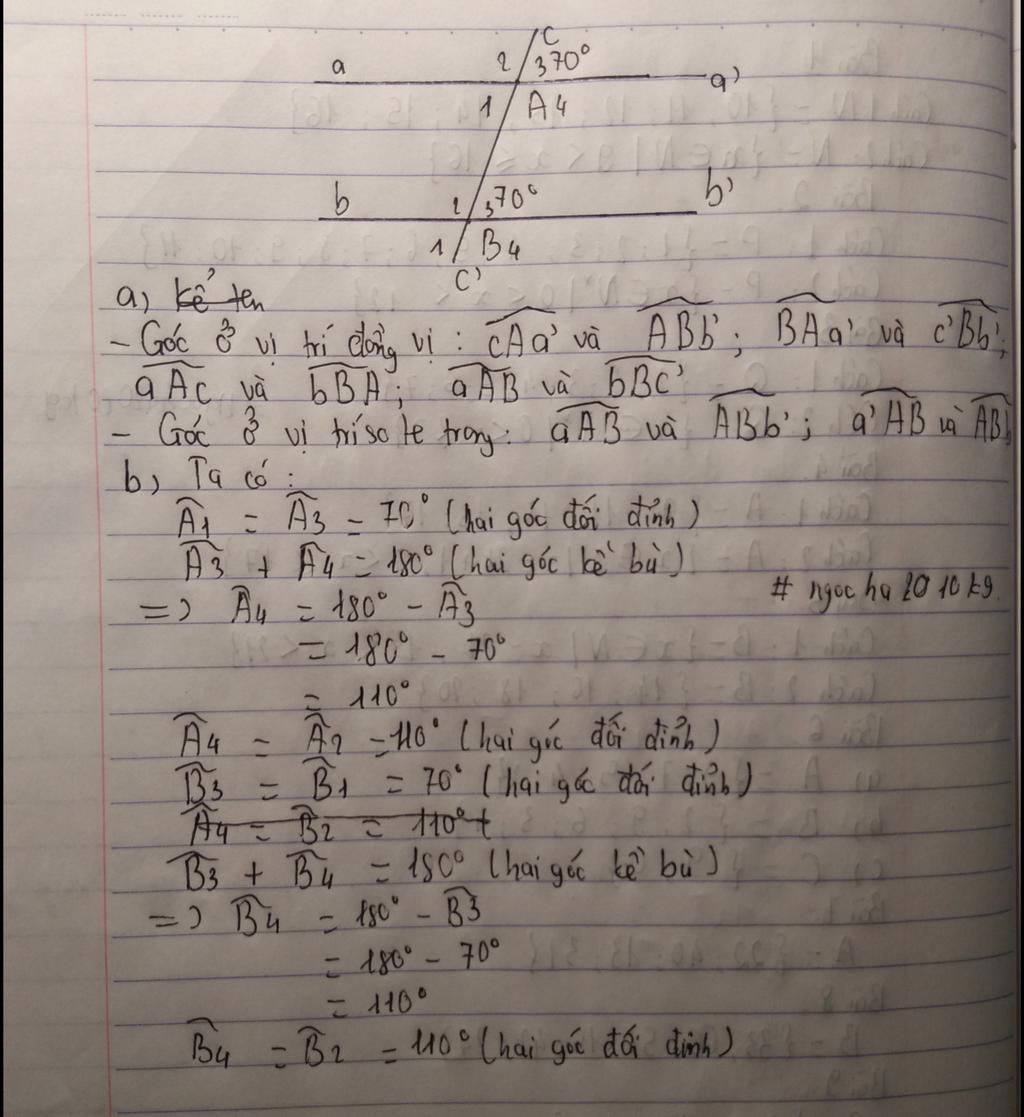 c
a 2 3 70° a'
1 A 4
b 2 3 70° b'
1 B 4
c'
a) kể tên
- Góc ở vị trí đồng vị : cAa' và ABb' ; BAa' và c'Bb' ;
aAc và bBA ; aAB và bBC'
- Góc ở vị trí so le trong : aAB và ABb' ; a'AB và ABb
b) Ta có :
A1 = A3 = 70° (hai góc đối đỉnh)
A3 + A4 = 180° (hai góc kề bù)
# ngoc ha 2010 kg
=> A4 = 180° - A3
= 180° - 70°
= 110°
A4 = A2 = 110° (hai góc đối đỉnh)
B3 = B1 = 70° (hai góc đối đỉnh)
A4 = B2 = 110° t
B3 + B4 = 180° (hai góc kề bù)
=> B4 = 180° - B3
= 180° - 70°
= 110°
B4 = B2 = 110° (hai góc đối đỉnh)